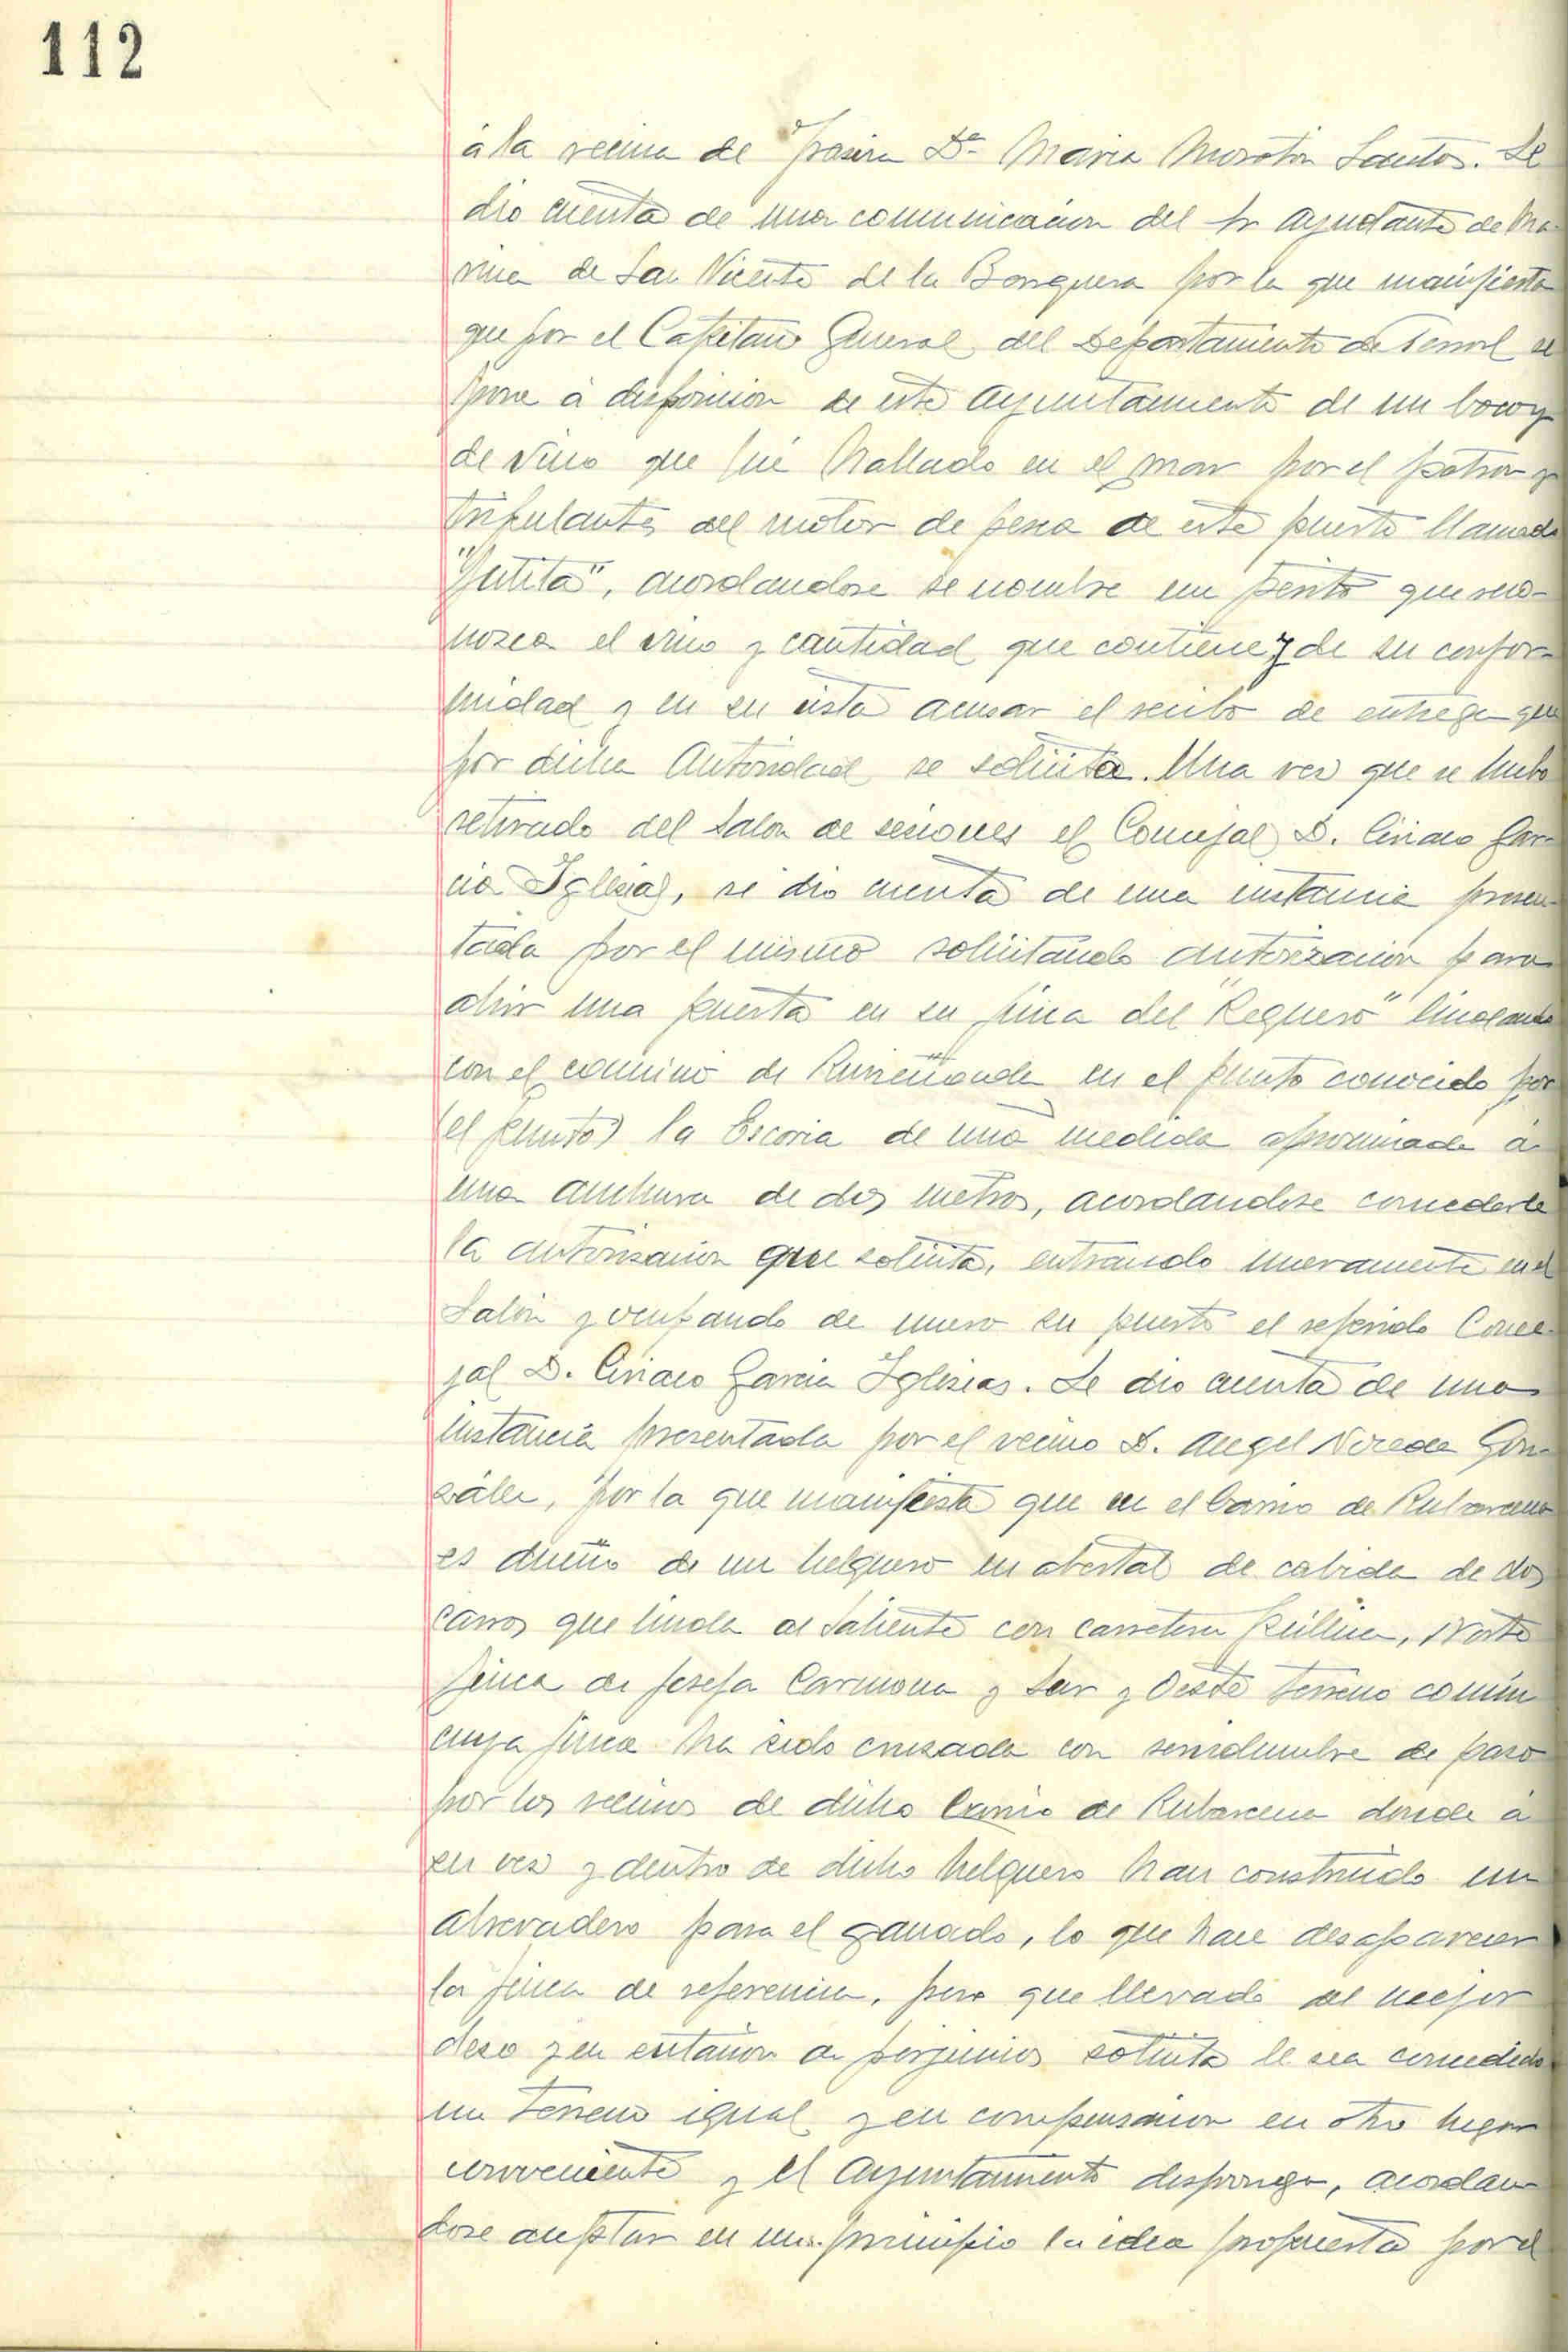 112
á la vecina de Dª Maria Morotón Santos. Se
dio cuenta de una comunicacion del Sr Ayudante de Ma-
rina de San Vicente de la Barquera por la que manifiesta
que por el Capitan General del Departamento de Ferrol se
pone á disposicion de este Ayuntamiento de un bocoy
de vino que fué hallado en el mar por el patron y
tripulantes del motor de pesca de este puerto llamado
acordandose se nombre un perito que reco-
nozca el vino y cantidad que contiene y de su confor-
midad y en su vista acusar el recibo de entrega que
por dicha Autoridad se solicita. Una vez que se hubo
retirado del Salon de sesiones el Concejal D. Ciriaco Gar-
cia Iglesias, se dio cuenta de una instancia presen-
tada por el mismo solicitando autorizacion para
abrir una puerta en su finca del "Reguero" lindando
con el camino de en el punto conocido por
(el punto) la Escoria de una medida aproximada á
una anchura de dos metros, acordandose concederle
la autorizacion que solicita, entrando nuevamente en el
Salón y ocupando de nuevo su puesto el referido Conce-
jal D. Ciriaco Garcia Iglesias. Se dio cuenta de una
instancia presentada por el vecino D. Angel Noreda Gon-
zález, por la que manifiesta que en el barrio de Rubarcena
es dueño de un helguero en abertal de cabida de dos
carros que linda al Saliente con carretera pública, Norte
finca de Josefa Carmona y Sur y Oeste terreno comun
cuya finca ha sido cruzada con servidumbre de paso
por los vecinos de dicho barrio de Rubarcena donde á
su vez y dentro de dicho helguero han construido un
abrevadero para el ganado, lo que hace desaparecer
la finca de referencia, pero que llevado del mejor
deseo y en evitacion de perjuicios solicita le sea concedido
un terreno igual y en compensacion en otro lugar
conveniente y el Ayuntamiento disponga, acordan-
dose aceptar en un principio la idea propuesta por el